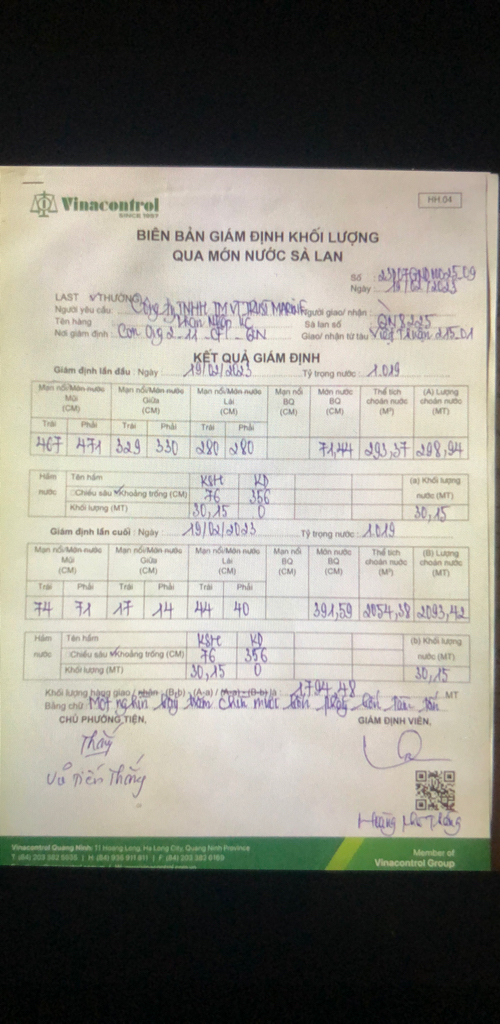 Vinacontrol
SINCE 1957
HH.04
BIÊN BẢN GIÁM ĐỊNH KHỐI LƯỢNG
QUA MỚN NƯỚC SÀ LAN
Số
Ngày 19/02/2023
LAST V THƯỜNG
Người yêu cầu: Công ty TNHH TM VT TRUST MARINE Người giao/ nhận:
Tên hàng Sà lan số QN8225
Nơi giám định: Con Ong 2 - 11 - CP - QN Giao/ nhận từ tàu Việt Thuận 215-01
KẾT QUẢ GIÁM ĐỊNH
Giám định lần đầu: Ngày 19/02/2023 Tỷ trọng nước: 1.019
Mạn nổi/Mớn nước Mũi (CM) Mạn nổi/Mớn nước Giữa (CM) Mạn nổi/Mớn nước Lái (CM) Mạn nổi BQ (CM) Mớn nước BQ (CM) Thể tích choán nước (M³) (A) Lượng choán nước (MT)
Trái Phải Trái Phải Trái Phải
467 471 329 330 280 280 71,44 293,37 298,94
Hầm nước Tên hầm KSH KĐ (a) Khối lượng nước (MT)
Chiều sâu Khoảng trống (CM) 76 356
Khối lượng (MT) 30,15 0 30,15
Giám định lần cuối: Ngày 19/02/2023 Tỷ trọng nước: 1.019
Mạn nổi/Mớn nước Mũi (CM) Mạn nổi/Mớn nước Giữa (CM) Mạn nổi/Mớn nước Lái (CM) Mạn nổi BQ (CM) Mớn nước BQ (CM) Thể tích choán nước (M³) (B) Lượng choán nước (MT)
Trái Phải Trái Phải Trái Phải
74 71 17 14 44 40 391,59 2054,38 2093,42
Hầm nước Tên hầm KSH KĐ (b) Khối lượng nước (MT)
Chiều sâu Khoảng trống (CM) 76 356
Khối lượng (MT) 30,15 0 30,15
Khối lượng hàng giao / nhận: (B-b) - (A-a) / (A-a) - (B-b) là: 1794,48 MT
Bằng chữ Một nghìn bảy trăm chín mươi bốn phẩy bốn tám tấn
CHỦ PHƯƠNG TIỆN, GIÁM ĐỊNH VIÊN,
Thắng
Vũ Tiến Thắng
Vinacontrol Quảng Ninh: 11 Hoang Long, Ha Long City, Quang Ninh Province
Member of
Vinacontrol Group